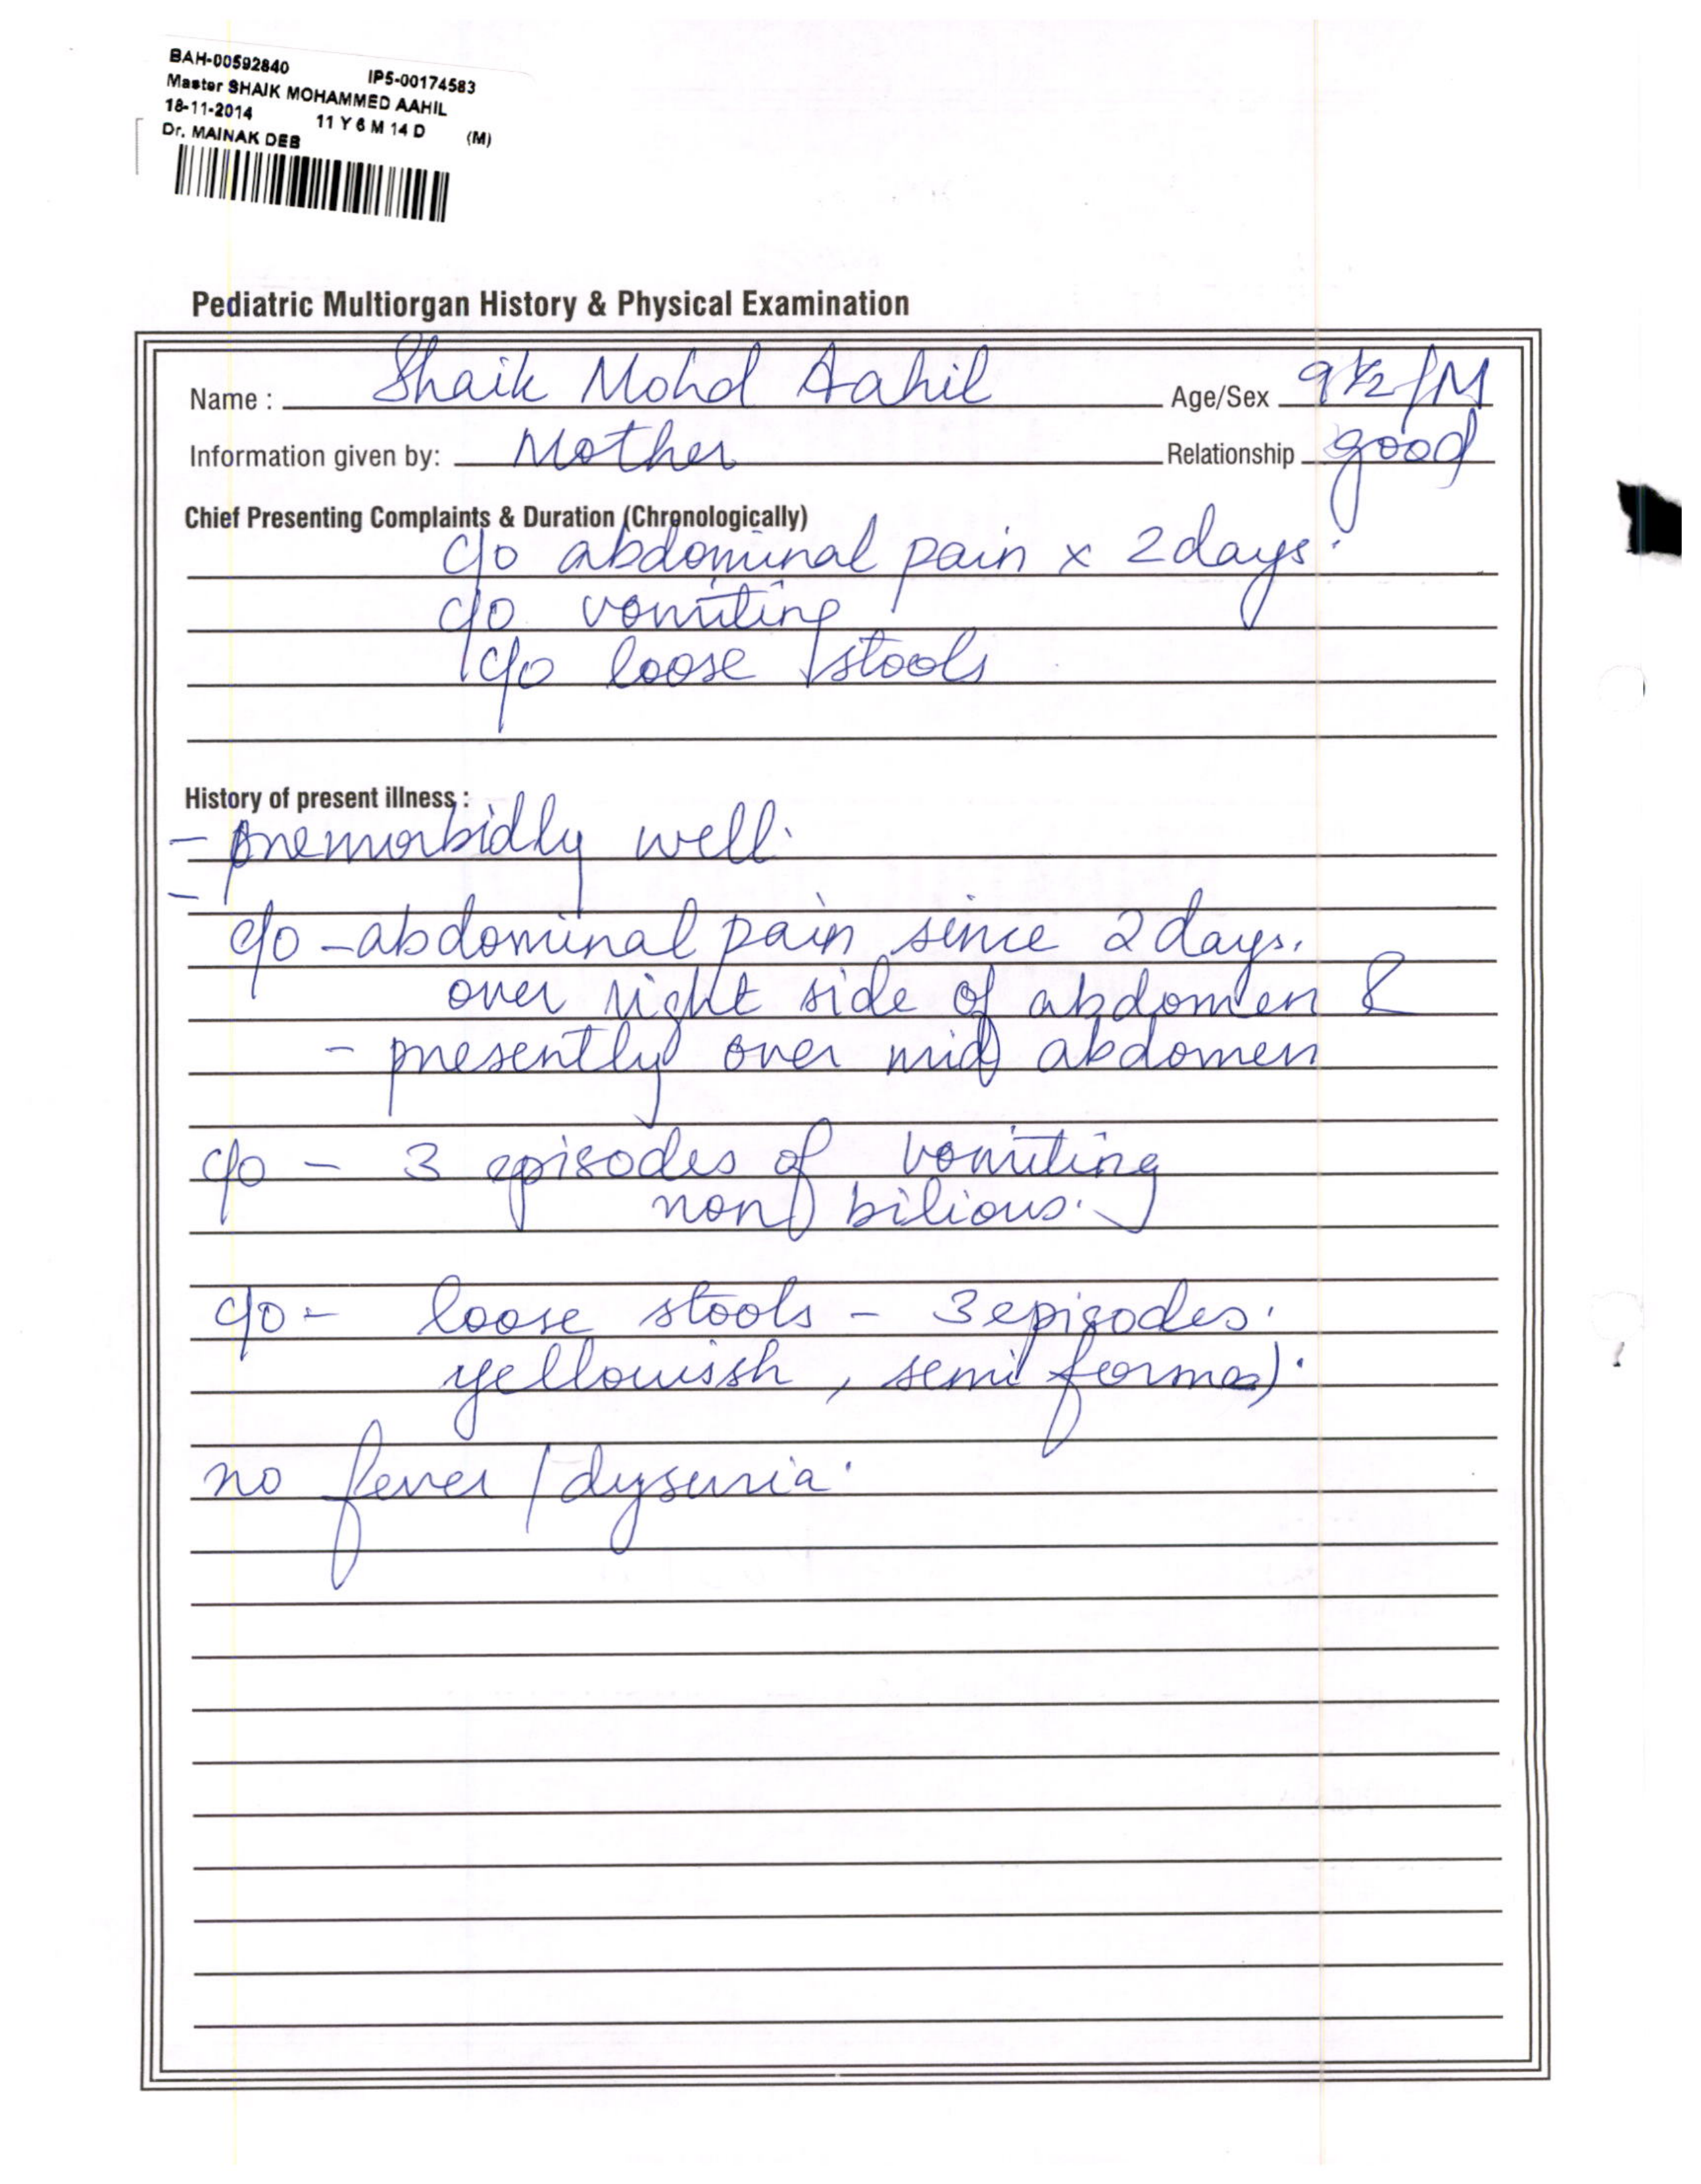 BAH-00592840 IP5-00174583
Master SHAIK MOHAMMED AAHIL
18-11-2014 11 Y 6 M 14 D (M)
Dr. MAINAK DEB
Pediatric Multiorgan History & Physical Examination
Name : Shaik Mohd Aahil Age/Sex 9½/M
Information given by: Mother Relationship good
Chief Presenting Complaints & Duration (Chronologically)
c/o abdominal pain x 2 days.
c/o vomiting
c/o loose stools
History of present illness :
- premorbidly well.
-
c/o - abdominal pain since 2 days.
over right side of abdomen &
- presently over mid abdomen
c/o - 3 episodes of vomiting
non bilious.
c/o - loose stools - 3 episodes.
yellowish, semi formed.
no fever / dysuria.